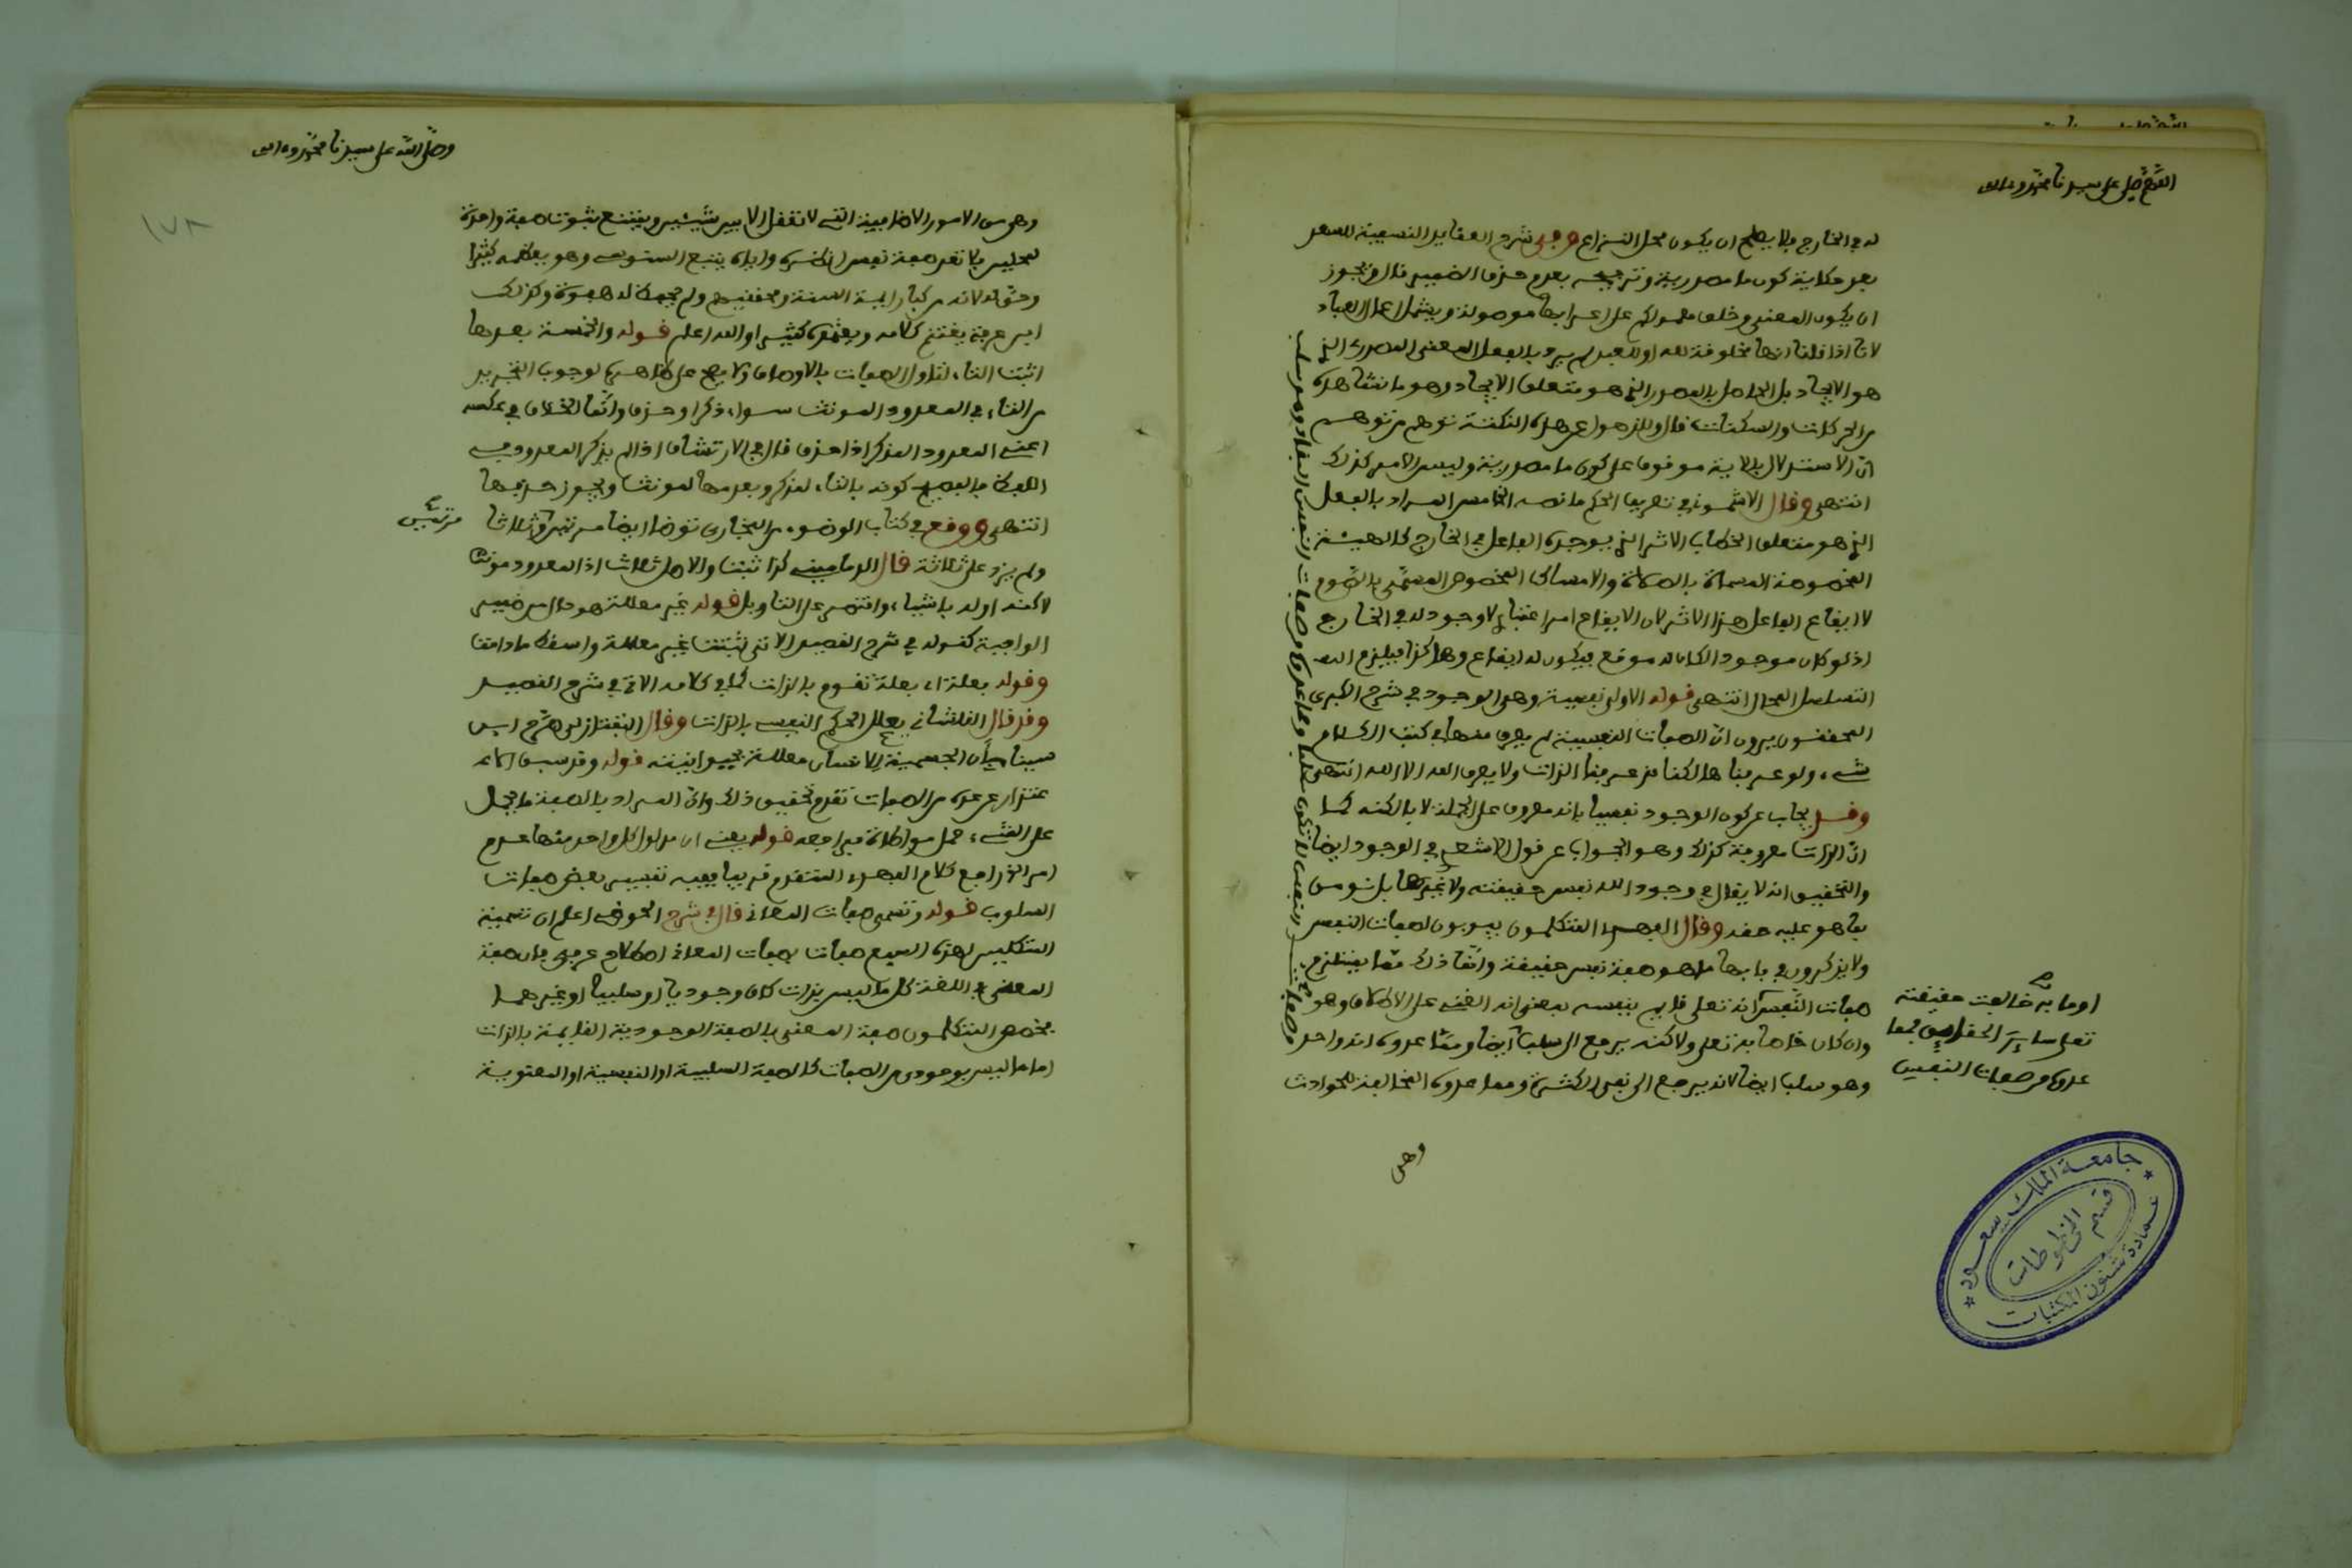 اللهم صل على سيدنا محمد وءاله
له في الخارج فلا يصلح ان يكون محل النزاع وفي شرح العقايد النسفية للسعد
بعد حكاية كون ما مصدرية وترجيحه بعدم حذف الضمير قال ويجوز
ان يكون المعنى وخلق معمولكم على اعرابها موصولة ويشمل اعمال العباد
لانا اذا قلنا انها مخلوقة لله او للعبد لم يرد بالفعل المعنى المصدري الذي
هو الايجاد بل الحاصل بالمصدر الذي هو متعلق الايجاد وهو ما نشاهده
من الحركات والسكنات قال وللذهول عن هذه النكتة توهم من توهم
ان الاستدلال بالاية موقوف على كون ما مصدرية وليس الامر كذلك
انتهى وقال الاشموني في تعريف الحكم ما نصه الخامس المراد بالفعل
الذي هو متعلق الخطاب الاثر الذي يوجده الفاعل في الخارج كالهيئة
المخصوصة المسماة بالصلاة والامساك المخصوص المسمى بالصوم
لا ايقاع الفاعل هذا الاثر لان الايقاع امر اعتباري لا وجود له في الخارج
اذ لو كان موجودا لكان له موقع فيكون له ايقاع وهكذا فيلزم
التسلسل المحال انتهى قوله الاولى نفسية وهي الوجود في شرح الكبرى
المحققون يرون ان الصفات النفسية لم يعرف منها في كتب الكلام
شيء ولو عرفناها لكنا قد عرفنا الذات ولا يعرف الله الا الله انتهى
وقد يجاب عن كون الوجود نفسيا بانه معروف على الجملة لا بالكنه كما
ان الذات معروفة كذلك وهو الجواب عن قول الاشعري في الوجود ايضا
والتحقيق انه لا يقال في وجود الله نفس حقيقته ولا غيرها بل نومن
بما هو عليه حقه وقال الفهري المتكلمون يبوبون لصفات النفس
ولا يذكرون في بابها ما هو صفة نفس حقيقة وانما ذلك مما يستلزم
صفات النفس كانه تعلى قايم بنفسه بمعنى انه الغني على الاطلاق وهو
وان كان خاصا به تعلى ولاكنه يرجع الى سلب ايضا ومما عدوه انه واحد
وهو سلب ايضا لانه يرجع الى نفي الكثرة ومما عدوه المخالفة للحوادث
او ما به خالفت حقيقته
تعلى سائر الحقايق مما
عدوه من صفات النفس
وهي
جامعة الملك سعود
قسم المخطوطات
عمادة شئون المكتبات
وصلى الله على سيدنا محمد وءاله
١٧٨
وهي من الامور الاضافية التي لا تعقل الا بين شيئين ويمتنع ثبوت صفة واحدة
لمحلين فلا تعد صفة نفس ان الفهري واياه يتبع السنوسي وهو يعظمه كثيرا
وحق له لانه من كبار ايمة السنة ومحققيهم
ابن عرفة يعتني بكلامه ويعتمده كثيرا والله اعلم قوله والخمسة بعدها
اثبت التاء لتاول الصفات بالاوصاف ولا يصح على ظاهره لوجوب التجريد
من التاء في المعدود المونث سواء ذكر او حذف وانما الخلاف في عكسه
اعني المعدود المذكر اذا حذف قال في الارتشاف اذا لم يذكر المعدود في
اللفظ فالفصيح كونه بالتاء لمذكر وبعدمها لمونث ويجوز حذفها
انتهى ووقع في كتاب الوضوء من البخاري توضا ايضا مرتين وثلاثا
مرتين
ولم يزد على ثلاثة قال الدماميني كذا ثبت والاصل ثلاث اذ المعدود مونث
لاكنه اوله باشياء واقتصر على التاويل قوله غير معللة هو حال من ضمير
الواجبة كقوله في شرح القصيد الاتي ثبتت غير معللة واسقط ما دامت
وقوله بعلة اي بعلة تقوم بالذات كما في كلامه الاتي في شرح القصيد
وقد قال القلشاني يعلل الحكم النفسي بالذات وقال التفتازاني في شرح
سينا بان الجسمية للانسان معللة بحيوانيته قوله وقد سبق
اعتذار عن عده من الصفات تقدم تحقيق ذلك وان المراد بالصفة ما يحمل
على الشيء حمل مواطاة فراجعه قوله يعني ان مدلول كل واحد منها عدم
امر الخ راجع كلام الفهري المتقدم قريبا ففيه تفسير بعض صفات
السلوب قوله وتسمى صفات المعاني قال في شرح الحوضي اعلم ان تسمية
المتكلمين لهذه السبع صفات بصفات المعاني اصطلاح عرفي فان صفة
المعنى في اللغة كل ما ليس بذات كان وجوديا او سلبيا او غيرهما
فخصص المتكلمون صفة المعنى بالصفة الوجودية القايمة بالذات
اما ما ليس بوجودي من الصفات كالصفة السلبية او النفسية او المعنوية